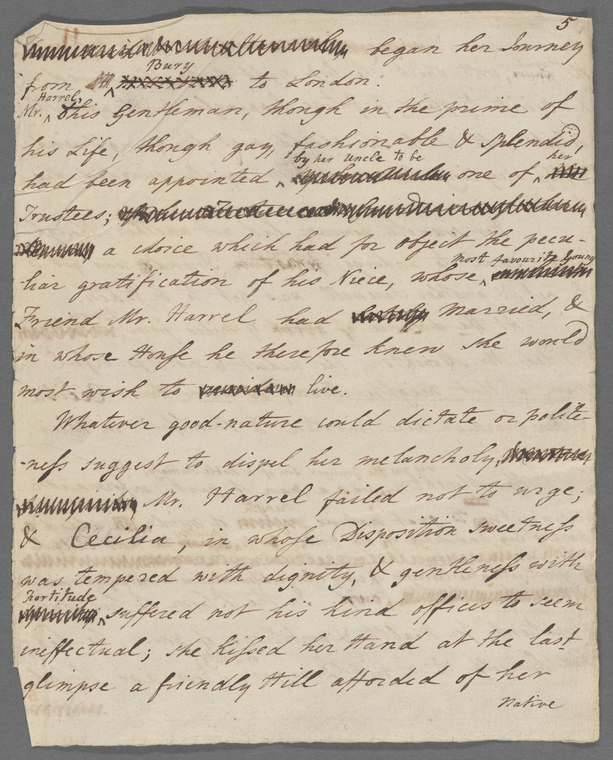 5
began her Journey
Bury
from to London.
Harrel,
Mr. this Gentleman, though in the prime of
his Life, though gay, fashionable & splendid,
by her Uncle to be her
had been appointed one of
Trustees;
a choice which had for object the pecu-
most favourite young
liar gratification of his Niece, whose
Friend Mr. Harrel had married, &
in whose House he therefore knew she would
most wish to live.
Whatever good-nature could dictate or polite-
-ness suggest to dispel her melancholy,
Mr. Harrel failed not to urge;
& Cecilia, in whose Disposition sweetness
was tempered with dignity, & gentleness with
Fortitude
suffered not his kind offices to seem
ineffectual; she kissed her Hand at the last
glimpse a friendly Hill afforded of her
Native